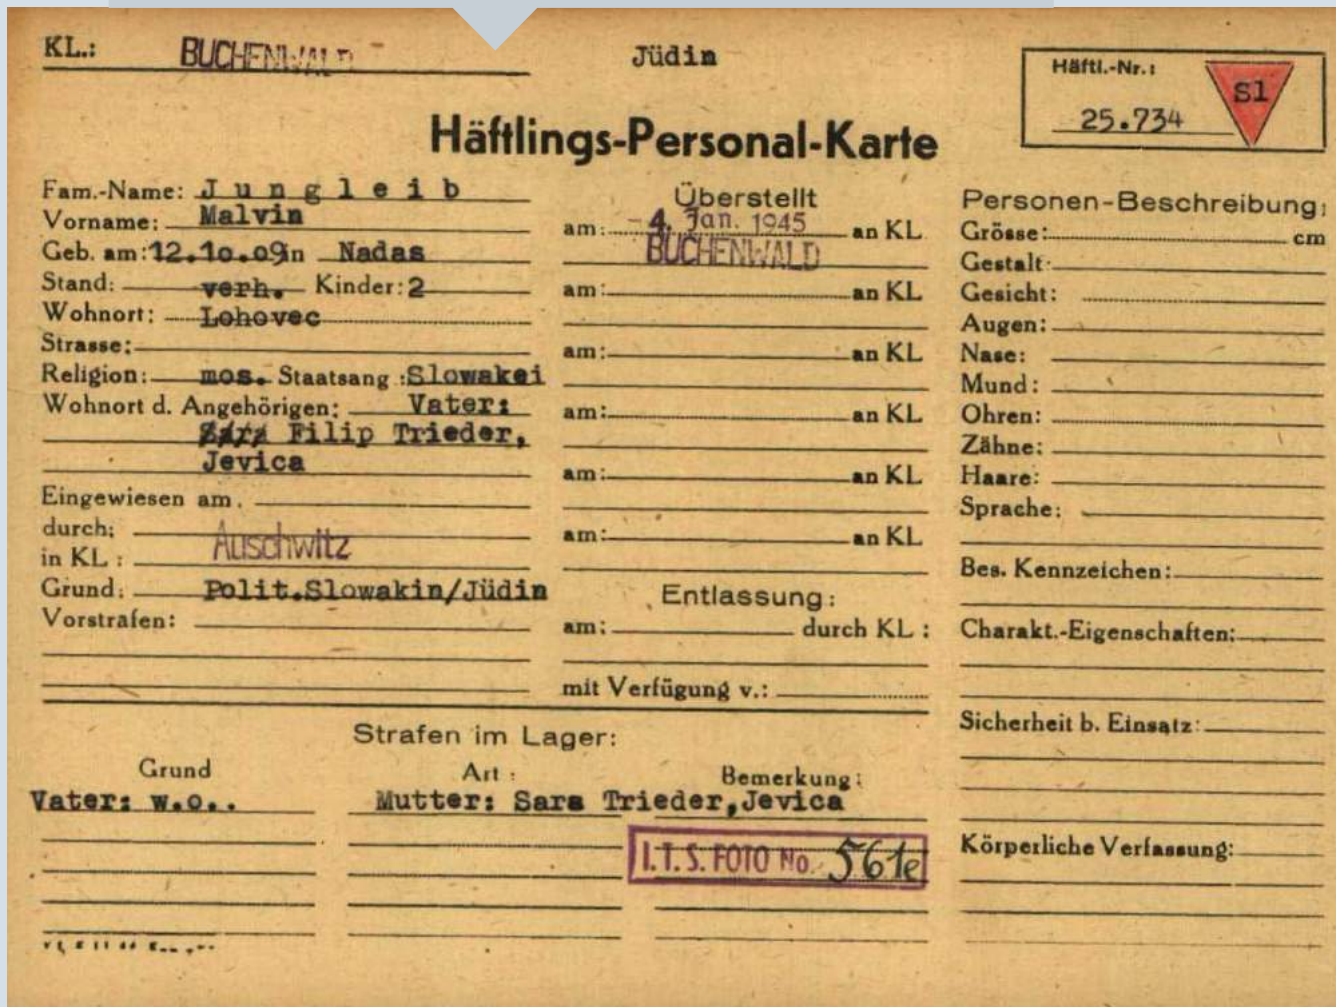 KL.: BUCHENWALD
Jüdin
Häftl.-Nr.:
Sl
25.734
Häftlings-Personal-Karte
Fam.-Name: Jungleib
Vorname: Malvin
Geb. am: 12.10.09 in Nadas
Stand: verh. Kinder: 2
Wohnort: Lohovec
Strasse:
Religion: mos. Staatsang.: Slowakei
Wohnort d. Angehörigen: Vater:
Filip Trieder,
Jevica
Eingewiesen am:
durch:
in KL: Auschwitz
Grund: Polit.Slowakin/Jüdin
Vorstrafen:
Überstellt
am: -4. Jan. 1945 an KL
BUCHENWALD
am: an KL
am: an KL
am: an KL
am: an KL
am: an KL
Entlassung:
am: durch KL:
mit Verfügung v.:
Personen-Beschreibung:
Grösse: cm
Gestalt:
Gesicht:
Augen:
Nase:
Mund:
Ohren:
Zähne:
Haare:
Sprache:
Bes. Kennzeichen:
Charakt.-Eigenschaften:
Sicherheit b. Einsatz:
Körperliche Verfassung:
Strafen im Lager:
Grund Art: Bemerkung:
Vater: w.o.. Mutter: Sara Trieder,Jevica
I.T.S. FOTO No. 561e